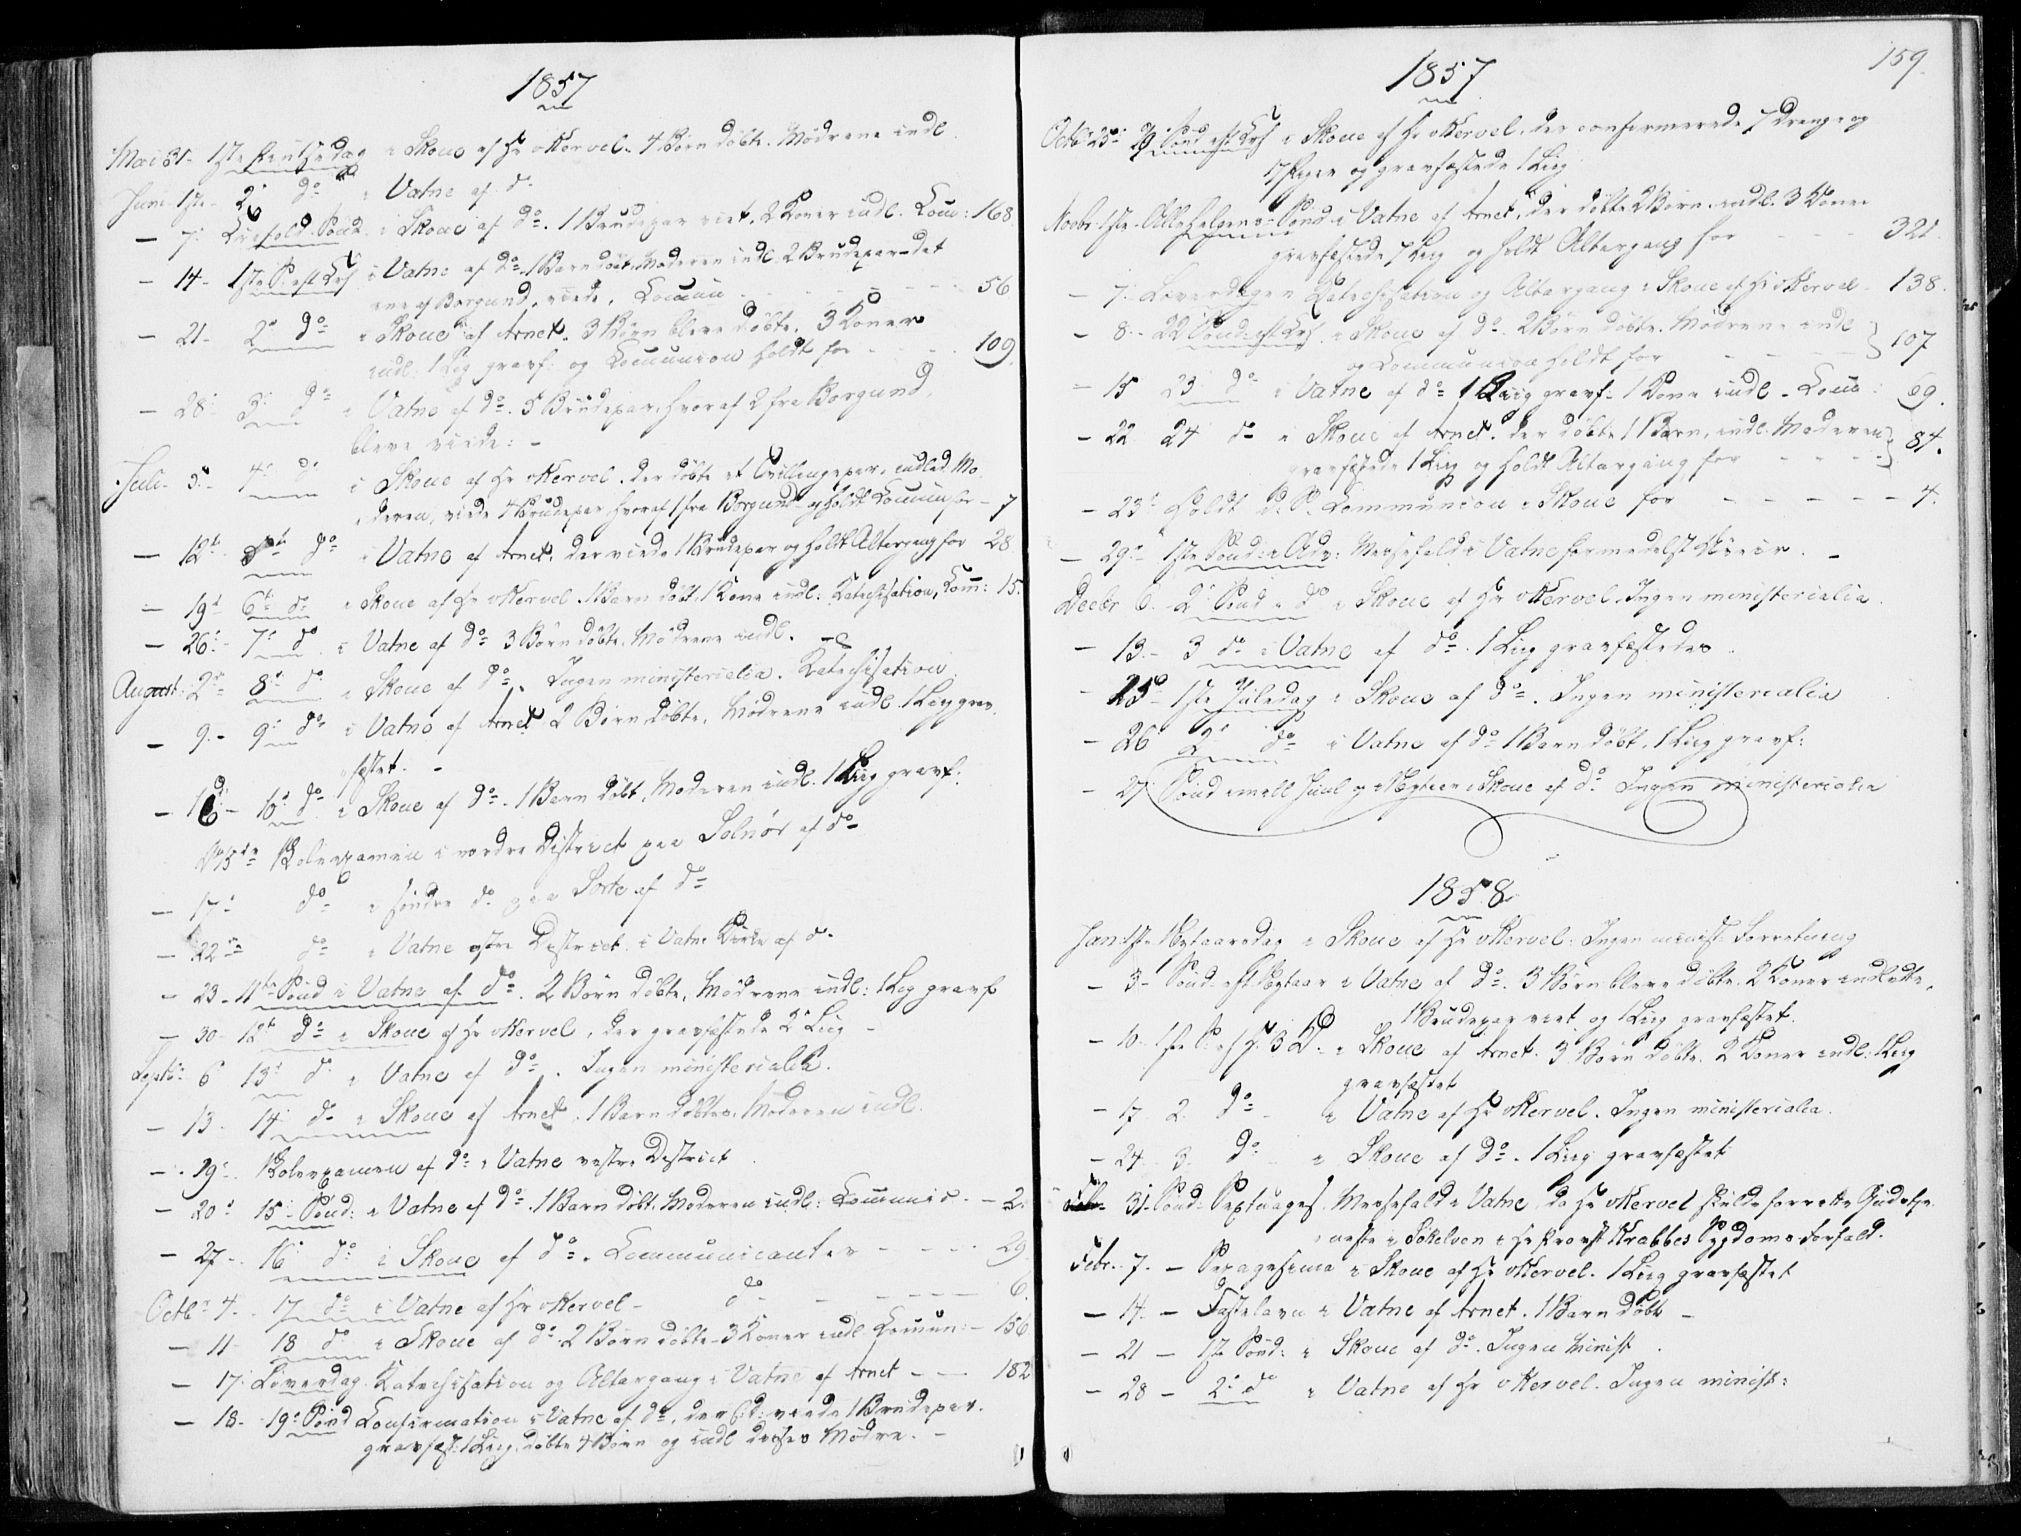 1857
Mai 31. 1ste Pintsedag i Skoue af Hr Kervel. 4 Børn døbte. Mødrene indl.
Juni 1ste 2 do i Vatne af do
— 7. Trefold. Sønd. i Skoue af do. 1 Brudepar viet, 2 Koner indl. Com: 168
— 14. 1ste S. eft Trf i Vatne af do. 1 Barn døbt. Moderen indl. 2 Brudepar det
ene af Borgund, viede. Commun - - - 56
— 21. 2. do i Skoue af Arnet. 3 Børn bleve døbte, 3 Koner
indl. 1 Lig gravf: og Communion holdt for - - 109.
— 28. 3. do i Vatne af do. 5 Brudepar, hvoraf 2 fra Borgund
bleve viede: -
Juli 5. 4. do i Skoue af Hr Kervel. der døbte et Tvillingepar, indled. Mo-
deren, viede 4 Brudepar hvoraf 1 fra Borgund og holdt Commun for - 7
— 12te 5te do i Vatne af Arnet, der viede 1 Brudepar og holdt Altergang for 28
— 19d 6te do i Skoue af Hr Kervel. 1 Barn døbt, 1 Kone indl: Katechisation, Com: 15.
— 26. 7. do i Vatne af do 3 Børn døbte, Mødrene indl.
August: 2. 8. do i Skoue af do. Ingen ministerialia. Katechisation.
— 9. 9. do i Vatne af Arnet 2 Børn døbte, Mødrene indl. 1 Lig grav-
fæstet. -
— 16 - 10. do i Skoue af do. 1 Barn døbt, Moderen indl. 1 Lig gravf:
Skolexamen i nordre District paa Solnør af do
— 17. do i søndre do paa Sorte af do
— 22 do i Vatne østre District i Vatne Kirke af do
— 23 - 11te Sønd i Vatne af do. 2 Børn døbte, Mødrene indl: 1 Lig gravf
— 30 - 12te do i Skoue af Hr Kervel, der gravfæstede 2 Lig -
Septb: 6 13. do i Vatne af do. Ingen ministerialia.
— 13 14. do i Skoue af Arnet. 1 Barn døbtes, Moderen indl.
— 19. Skolexamen af do i Vatne vestre District
— 20. 15. Sønd: i Vatne af do. 1 Barn døbt. Moderen indl: Communic. - 2.
— 27. 16 do i Skoue af do. Communicantes - - - 29
Octb: 4. 17 do i Vatne af Hr Kervel - do - - - 6.
— 11 18 do i Skoue af do. 2 Børn døbte. 3 Koner indl. Commun: - 156
— 17. Løverdag Katechisation og Altergang i Vatne af Arnet - - 182
— 18. 19. Sønd Confirmation i Vatne af do, der viede 1 Brudepar.
gravfæst: 1 Lig, døbte 4 Børn og indl disses Mødre. -
159.
1857
Octb 25. 20 Sønd eft Trf i Skoue af Hr Kervel, der confirmerede Drenge og
Piger og gravfæstede 1 Lig
Novbr 1ste Allehelgens-Sønd i Vatne af Arnet, der døbte 2 Børn, indl. 3 Koner
gravfæstede 7 Lig og holdt Altergang for - - - 321.
— 7. Løverdagen Katechisation og Altergang i Skoue af Hr Kervel - 138.
— 8. 22 Sønd eft Trf. i Skoue af do. 2 Børn døbte. Mødrene indl
og Communion holdt for - - - 107
— 15 23 do i Vatne af do 1 Liig gravf. 1 Kone indl. Com: 69.
— 22 24 do i Skoue af Arnet, der døbte 1 Barn, indl. Moderen
gravfæstede 1 Lig og holdt Altergang for - - - 84.
— 23. Holdt Communion i Skoue for - - - - 4.
— 29. 1ste Sønd: i Adv: Messefald i Vatne formedelst Uveir. -
Decbr 6. 2. Sønd i do i Skoue af Hr Kervel. Ingen ministerialia.
— 13. 3 do i Vatne af do. 1 Lig gravfæstedes.
— 25. 1ste Juledag i Skoue af do. Ingen ministerialia
— 26 2. do i Vatne af do 1 Barn døbt, 1 Lig gravf:
— 27. Sønd mell Juul og Nytaar i Skoue af do Ingen ministerialia
1858
Jan: 1ste Nytaarsdag i Skoue af Hr Kervel: Ingen minist: Forretning
— 3. Sønd. eft Nytaar i Vatne af do. 3 Børn bleve døbte. 2 Koner indledte,
1 Brudepar viet og 1 Lig gravfæstet.
— 10. 1ste S. eft H. 3 K. i Skoue af Arnet. 3 Børn døbte. 2 Koner indl: 1 Lig
gravfæstet
— 17. 2. do i Vatne af Hr Kervel. Ingen ministerialia.
— 24 3. do i Skoue af do. 1 Lig gravfæstet
— 31. Sønd. Septuages. Messefald i Vatne, da Hr Kervel skulde forrette Gudstje-
neste i Søkelven i Hr Provst Krabbes Sygdoms Forfald.
Febr. 7. — Sexagesima i Skoue af Hr Kervel. 1 Lig gravfæstet
— 14. — Fastelavn i Vatne af Arnet. 1 Barn døbt —
— 21 — 1ste Sønd: i Skoue af do. Ingen Minist.
— 28 — 2. do i Vatne af Hr Kervel. Ingen minist: